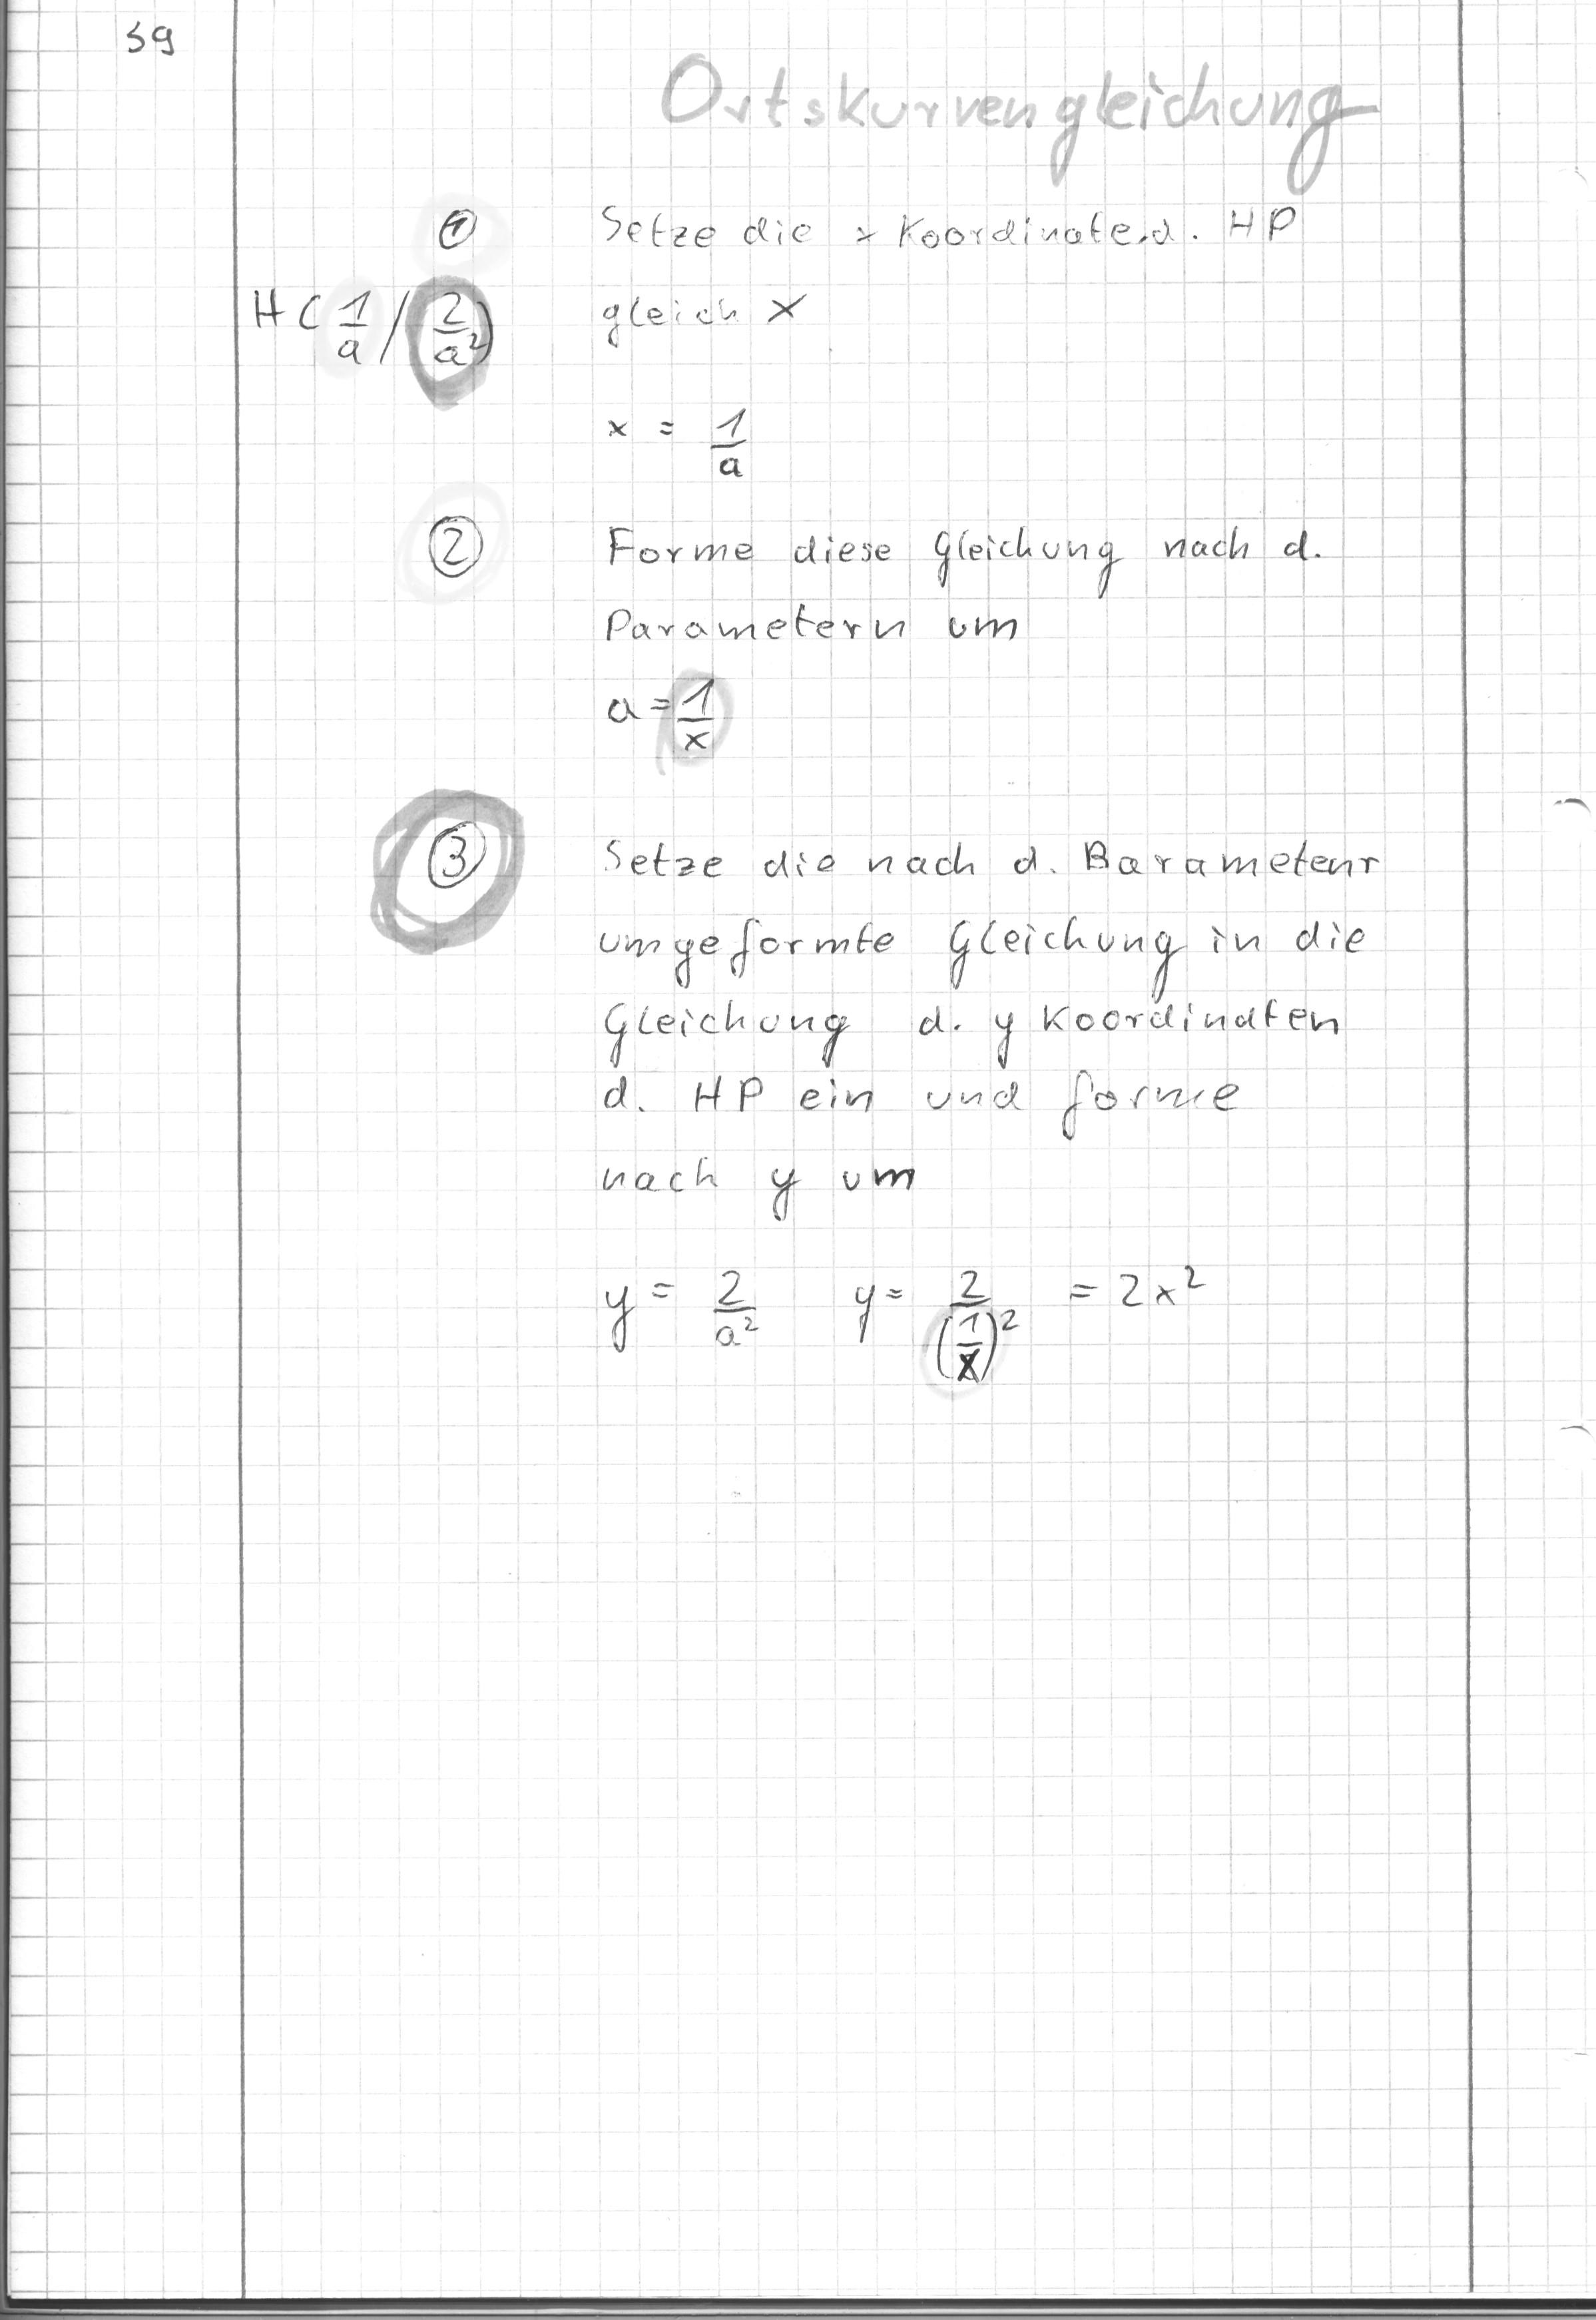 59
Ortskurvengleichung
① Setze die x Koordinate.d. HP
H(1/a / 2/a²) gleich x
x = 1/a
② Forme diese Gleichung nach d.
Parametern um
a = 1/x
③ Setze die nach d. Barametenr
umgeformte Gleichung in die
Gleichung d. y Koordinaten
d. HP ein und forme
nach y um
y = 2/a² y = 2/(1/x)² = 2x²